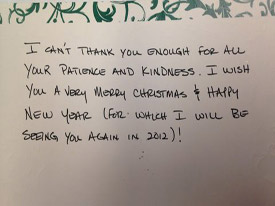 I CAN'T THANK YOU ENOUGH FOR ALL
YOUR PATIENCE AND KINDNESS. I WISH
YOU A VERY MERRY CHRISTMAS & HAPPY
NEW YEAR (FOR WHICH I WILL BE
SEEING YOU AGAIN IN 2012)!